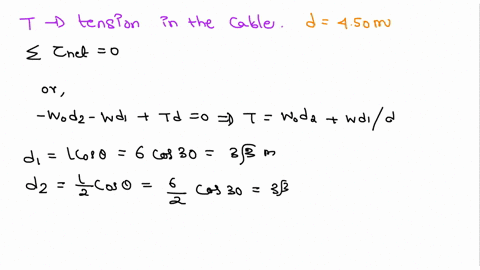 T → tension in the cable. d = 4.50 m
Σ τnet = 0
or,
-W₀d₂ - Wd₁ + Td = 0 ⇒ T = W₀d₂ + Wd₁/d
d₁ = lcosθ = 6 cos 30 = 3√3 m
d₂ = l/2 cosθ = 6/2 cos 30 = 3√3